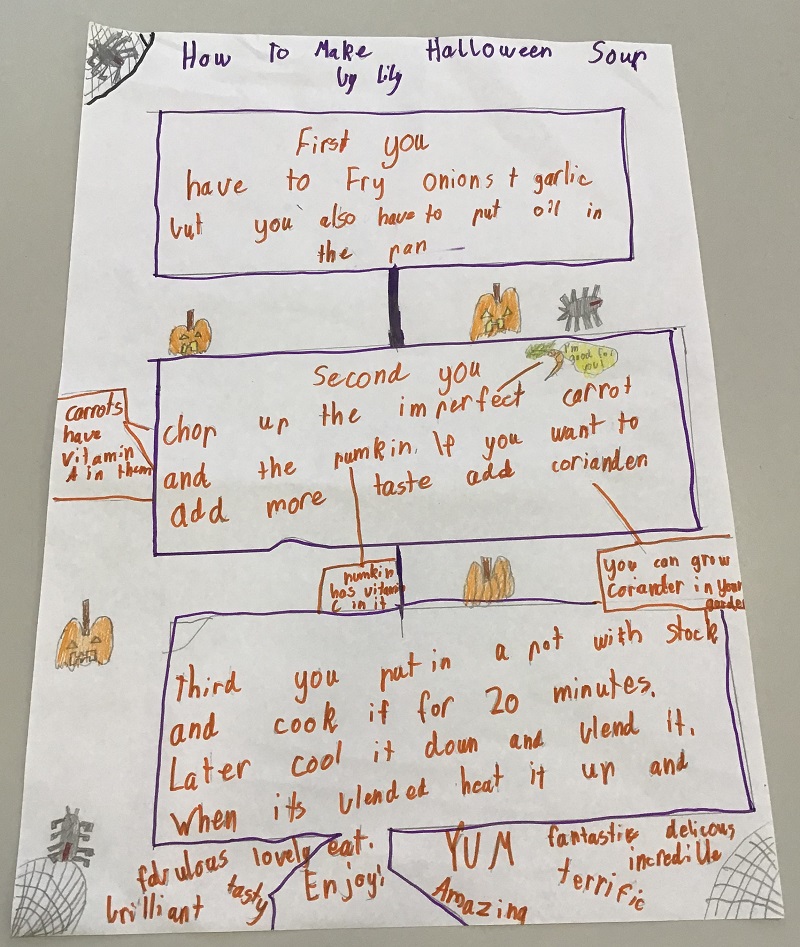 How To Make Halloween Soup
by Lily
First you
have to Fry onions + garlic
but you also have to put oil in
the pan
I'm
good for
you!
Second you
chop up the imperfect carrot
and the pumkin. If you want to
add more taste add coriander
carrots
have
vitamin
A in them
pumkin
has vitamin
C in it
you can grow
coriander in your
garden
Third you put in a pot with stock
and cook it for 20 minutes.
Later cool it down and blend it.
When its blended heat it up and
eat.
Enjoy!
fabulous lovely
brilliant tasty
YUM fantastic delicous
incredible
Amazing terrific